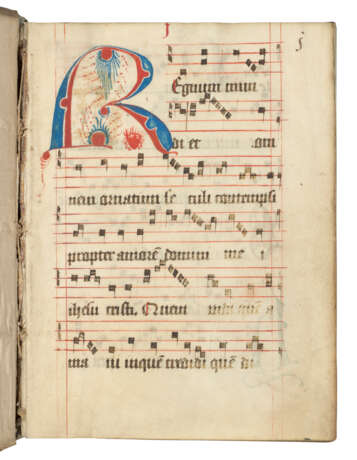 Regnum mun
di et om
nem ornatum se culi contempsi
propter amorē domini me i
ihesu cristi. Quem vidi quē a
ma ui inquē credidi quē di